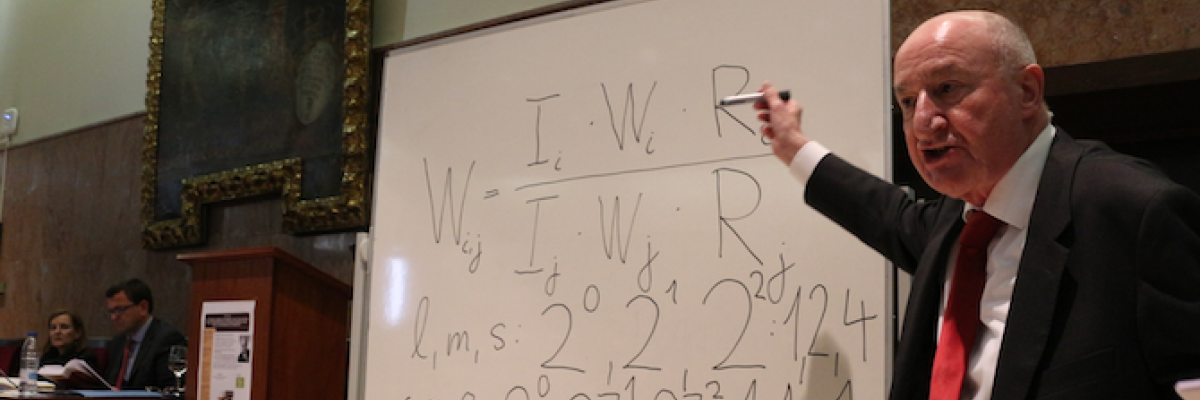 I_i · W_i · R_i
W_ij = ―――――――
I_j · W_j · R_j
l, m, s: 2^0, 2^1 2^2: 1, 2, 4